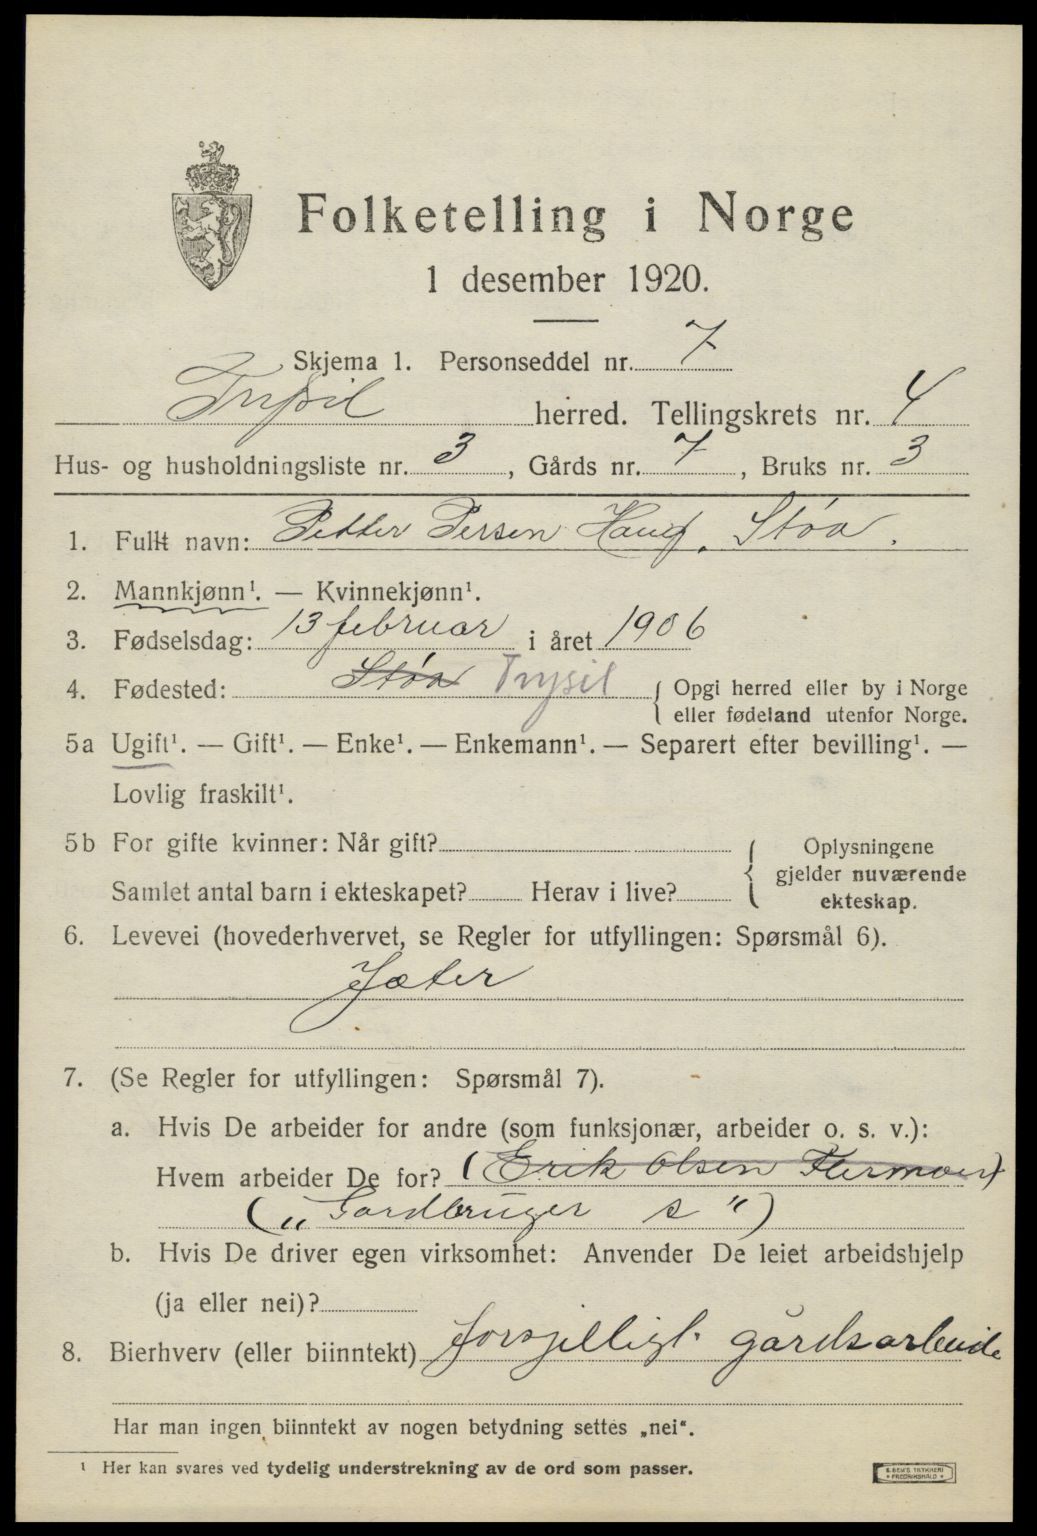 Folketelling i Norge
1 desember 1920.
Skjema 1. Personseddel nr. 7
Trysil herred. Tellingskrets nr. 4
Hus- og husholdningsliste nr. 3, Gårds nr. 7, Bruks nr. 3
1. Fullt navn: Petter Persen Haug, Støa.
2. Mannkjønn¹. — Kvinnekjønn¹.
3. Fødselsdag: 13 februar i året 1906
4. Fødested: Støa Trysil { Opgi herred eller by i Norge
eller fødeland utenfor Norge.
5a Ugift¹. — Gift¹. — Enke¹. — Enkemann¹. — Separert efter bevilling¹. —
Lovlig fraskilt¹.
5b For gifte kvinner: Når gift? { Oplysningene
gjelder nuværende
Samlet antal barn i ekteskapet? Herav i live?
ekteskap.
6. Levevei (hovederhvervet, se Regler for utfyllingen: Spørsmål 6).
Jæter
7. (Se Regler for utfyllingen: Spørsmål 7).
a. Hvis De arbeider for andre (som funksjonær, arbeider o. s. v.):
Hvem arbeider De for? (Erik Olsen Flermoen)
(„ Gardbruger s “)
b. Hvis De driver egen virksomhet: Anvender De leiet arbeidshjelp
(ja eller nei)?
8. Bierhverv (eller biinntekt) forsjelligt gårdsarbeide
Har man ingen biinntekt av nogen betydning settes „nei“.
¹ Her kan svares ved tydelig understrekning av de ord som passer.